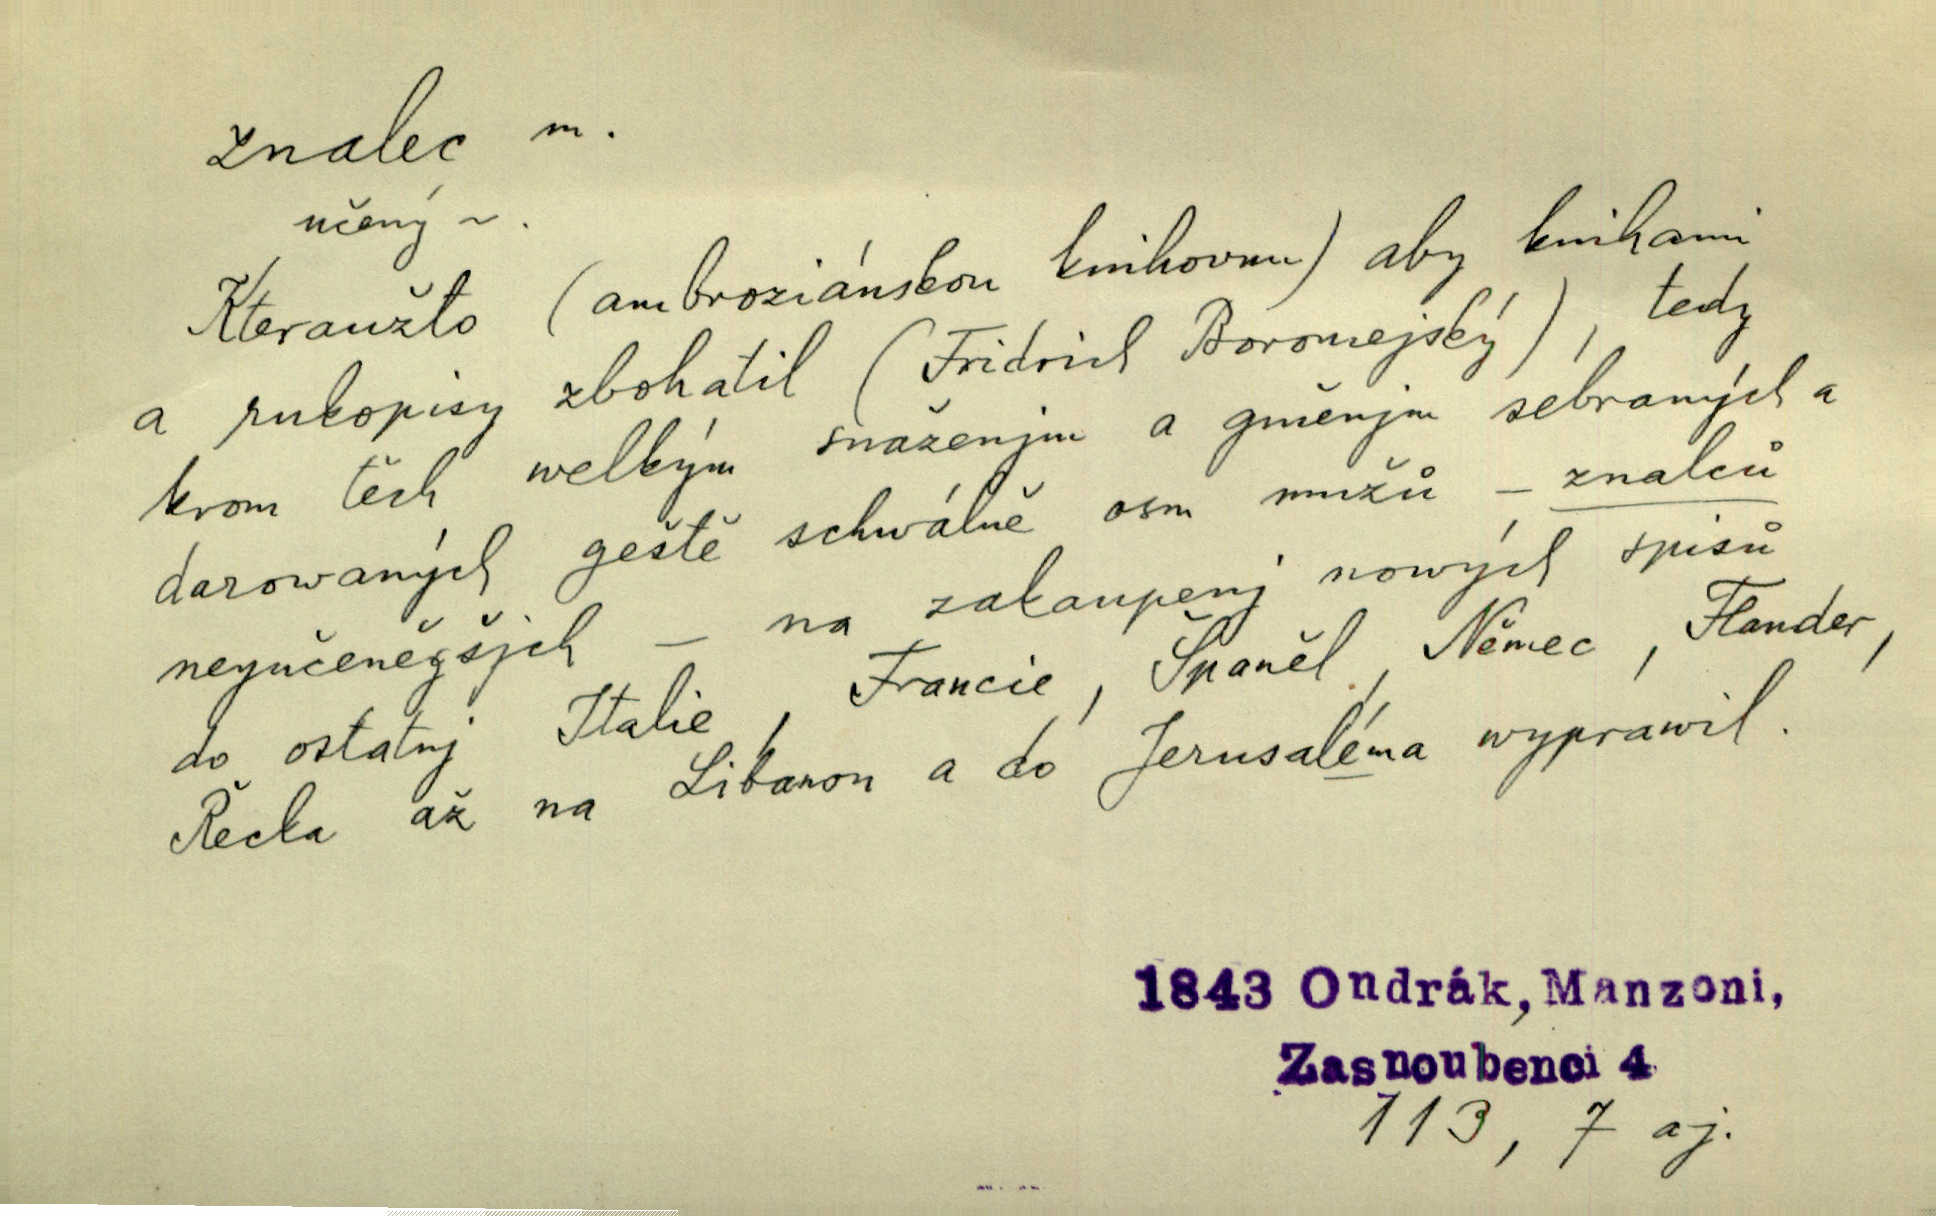 znalec m.
učený ~.
Kteraužto (ambroziánskou knihovnu) aby knihami
a rukopisy zbohatil (Fridrich Boromejský), tedy
krom těch welkým snaženjm a gměnjm sebraných a
darowaných geště schwálně osm mužů – znalců
neyučeněgšjch – na zakaupenj nowých spisů
do ostatnj Italie, Francie, Španěl, Němec, Flander,
Řecka až na Libanon a do Jerusaléma wyprawil.
1843 Ondrák, Manzoni,
Zasnoubenci 4
113, 7 aj.